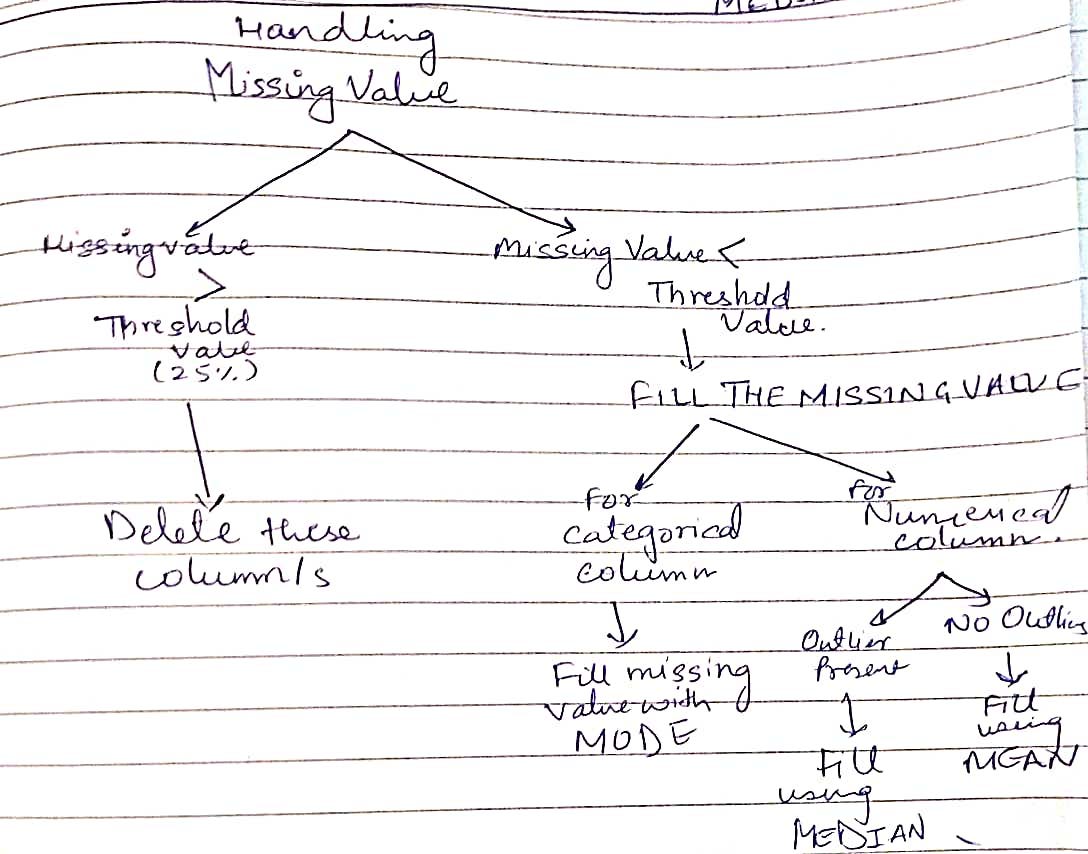 Handling
Missing Value
Missing value
>
Threshold
value
(25%)
Delete these
column/s
Missing Value <
Threshold
Value.
FILL THE MISSING VALUE
For
categorical
column
Fill missing
value with
MODE
For
Numerical
column.
Outlier
Present
Fill
using
MEDIAN
NO Outlier
Fill
using
MEAN